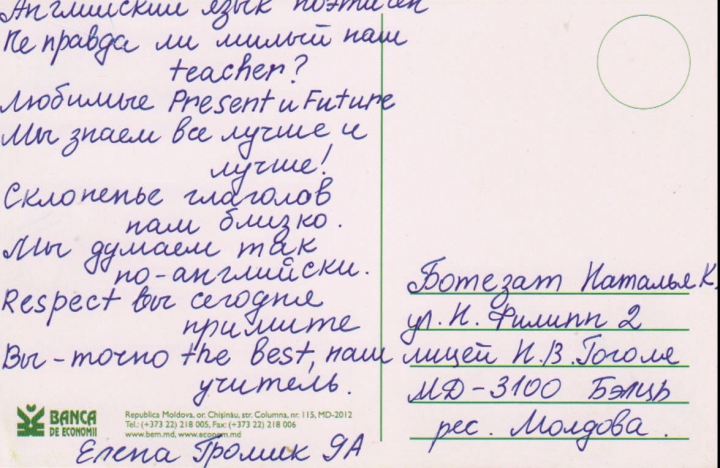 Английский язык поэтичен
Не правда ли милый наш
teacher?
Любимые Present и Future
Мы знаем все лучше и
лучше!
Склоненье глаголов
нам близко.
Мы думаем так
по-английски.
Respect вы сегодня
примите
Вы - точно the best, наш
учитель.
BANCA
DE ECONOMII
Republica Moldova, or. Chişinău, str. Columna, nr. 115, MD-2012
Tel.: (+373 22) 218 005, Fax: (+373 22) 218 006
www.bem.md, www.econom.md
Елена Громик 9А
Ботезат Наталье К.
ул. Н. Филипп 2
лицей Н.В. Гоголя
МД-3100 Бэлць
рес. Молдова.